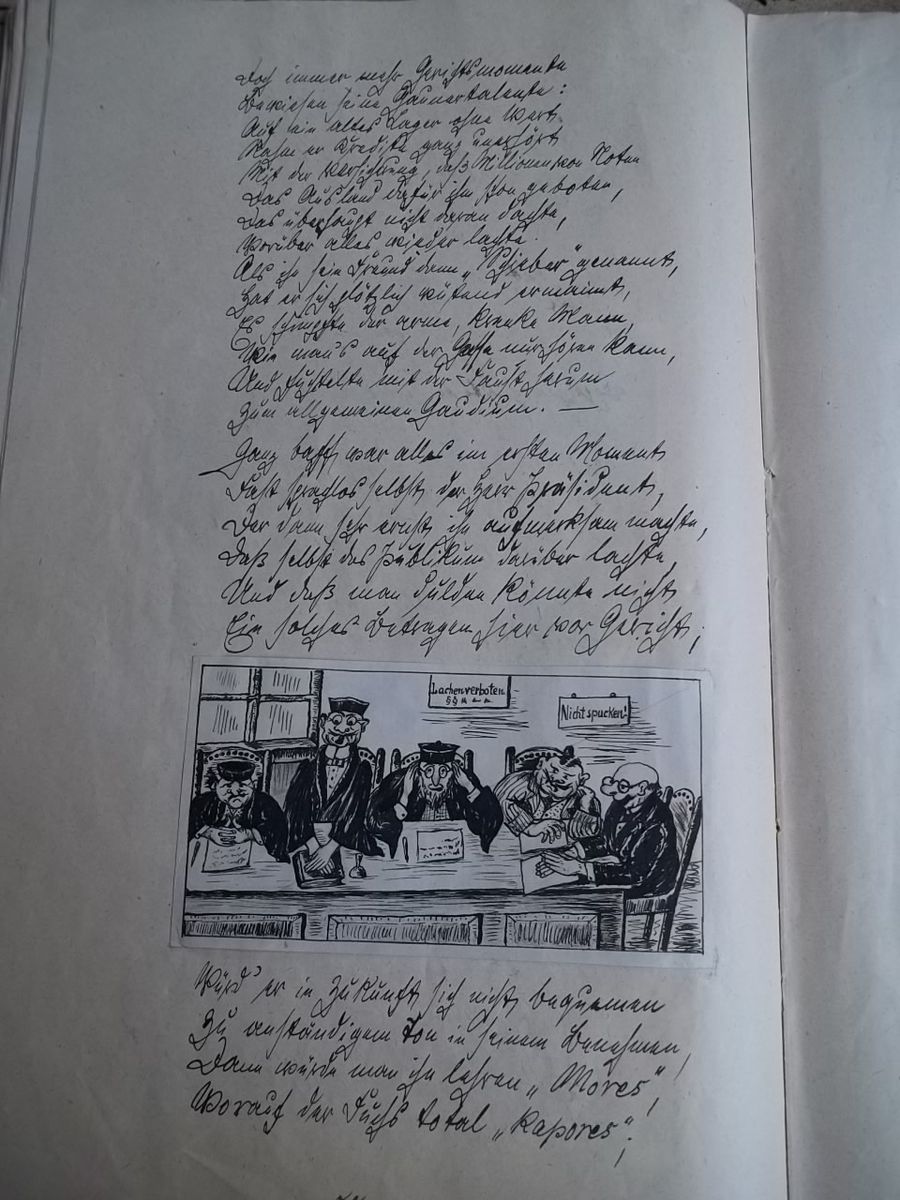 Doch immer mehr Gerichtsmomente
Bewiesen seine Gaunertalente:
Auf sein altes Lager ohne Wert
Nahm er Kredite ganz unerhört
Mit der Versichrung, daß Millionen von Noten
Das Ausland dafür ihm schon geboten,
Das überhaupt nicht daran dachte,
Worüber alles wieder lachte.
Als ihn sein Freund dann „Schieber" genannt,
Hat er sich plötzlich wütend ermannt,
Es schimpfte der arme, kranke Mann,
Wie man's auf der Gasse nur hören kann,
Und fuchtelte mit der Faust herum
Zum allgemeinen Gaudium. —
Ganz baff war alles im ersten Moment
Fast sprachlos selbst der Herr Präsident,
Der dann sehr ernst ihn aufmerksam machte,
Daß selbst das Publikum darüber lachte,
Und daß man dulden könnte nicht
Ein solches Betragen hier vor Gericht;
Lachen verboten
§§
Nicht spucken!
Würd' er in Zukunft sich nicht bequemen
Zu anständigem Ton in seinem Benehmen,
Dann würde man ihn lehren „Mores",
Worauf der Fuchs total „kapores".